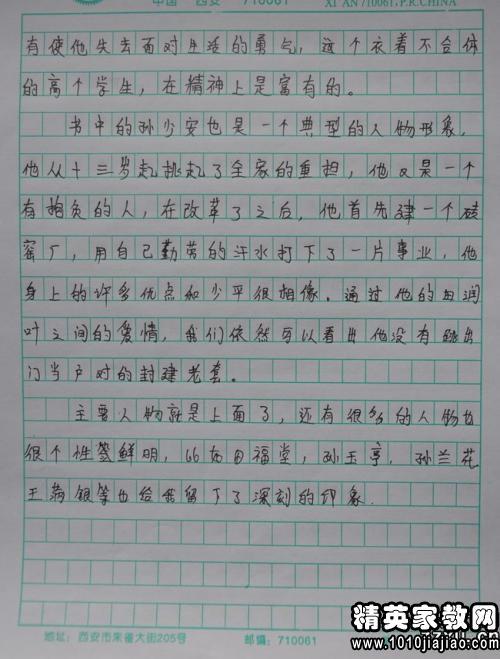 中国 西安 710061 XI'AN 710061, P.R.CHINA
有使他失去面对生活的勇气，这个衣着不合体
的高个学生，在精神上是富有的。
书中的孙少安也是一个典型的人物形象，
他从十三岁起挑起了全家的重担，他又是一个
有抱负的人，在改革了之后，他首先建一个砖
窑厂，用自己勤劳的汗水打下了一片事业，他
身上的许多优点和少平很相像。通过他的与润
叶之间的爱情，我们依然可以看出他没有跳出
门当户对的封建老套。
主要人物就是上面了，还有很多的人物也
很个性鲜明，比如田福堂，孙玉亭，孙兰花
王满银等也给我留下了深刻的印象.
地址：西安市朱雀大街205号 邮编：710061
精英家教网
www.1010jiajiao.com